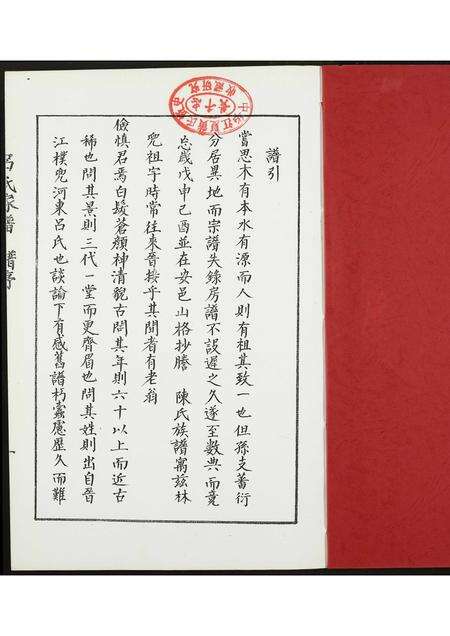 譜引
嘗思木有本水有源而人則有祖其致一也但孫支蕃衍
分居異地而宗譜失錄房譜不設遲之久遂至數典而竟
忘歲戊申己酉並在安邑山格抄謄 陳氏族譜寓茲林
兜祖宇時常往來晉接乎其間者有老翁
儉慎君焉白髮蒼顏神清貌古問其年則六十以上而近古
稀也問其景則三代一堂而更齊眉也問其姓則出自晉
江樸兜河東呂氏也談論下有感舊譜朽蠹慮歷久而難
呂氏家譜 譜序
一